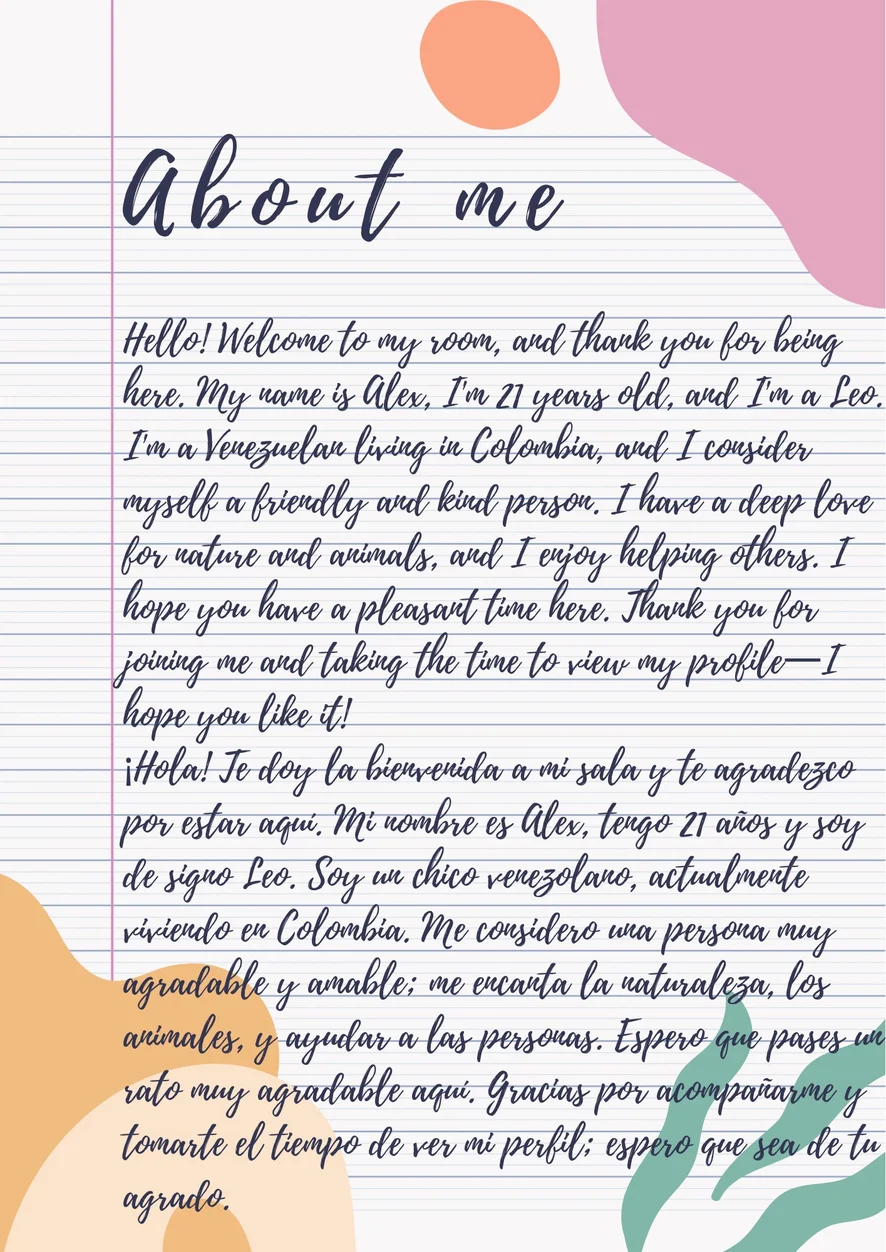 About me
Hello! Welcome to my room, and thank you for being
here. My name is Alex, I'm 21 years old, and I'm a Leo.
I'm a Venezuelan living in Colombia, and I consider
myself a friendly and kind person. I have a deep love
for nature and animals, and I enjoy helping others. I
hope you have a pleasant time here. Thank you for
joining me and taking the time to view my profile—I
hope you like it!
¡Hola! Te doy la bienvenida a mi sala y te agradezco
por estar aquí. Mi nombre es Alex, tengo 21 años y soy
de signo Leo. Soy un chico venezolano, actualmente
viviendo en Colombia. Me considero una persona muy
agradable y amable; me encanta la naturaleza, los
animales, y ayudar a las personas. Espero que pases un
rato muy agradable aquí. Gracias por acompañarme y
tomarte el tiempo de ver mi perfil; espero que sea de tu
agrado.